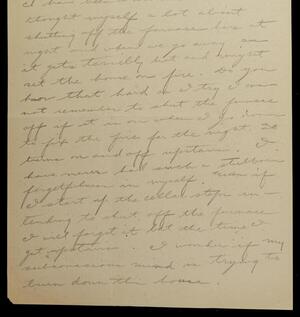 I have been
thought myself a lot about
shutting off the furnace here at
night and when we go away, as
it gets terribly hot and might
set the house on fire. Do you
know that hard as I try I can
not remember to shut the furnace
off if it is on when I go down
to fix the fire for the night. It
turns on and off upstairs. I
have never had such a stubborn
forgetfulness in myself. Even if
I start up the cellar steps in-
tending to shut off the furnace
I will forget it by the time I
get upstairs. I wonder if my
subconscious mind is trying to
burn down this house.